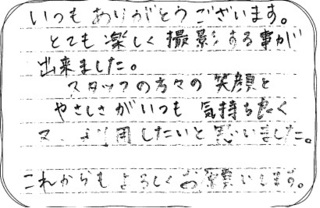 いつもありがとうございます。
とても楽しく撮影する事が
出来ました。
スタッフの方々の笑顔と
やさしさがいつも気持ち良く
又、利用したいと思いました。
これからもよろしくお願いします。